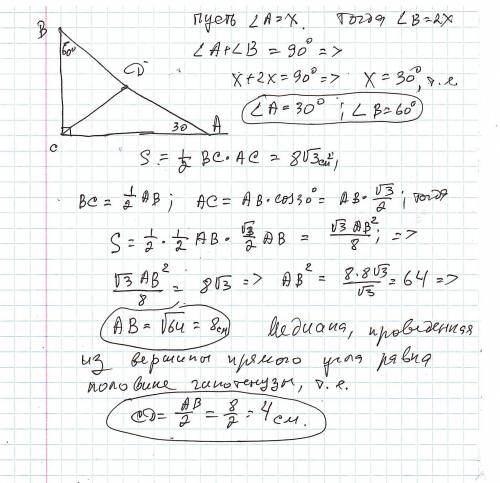 Пусть ∠A=X. Тогда ∠B=2X
∠A+∠B=90° =>
X+2X=90° => X=30°, т.е
∠A=30°; ∠B=60°
B
60°
D
30
A
C
S=1/2 BC·AC=8√3 см²;
BC=1/2 AB; AC=AB·cos30°=AB·√3/2; тогда
S=1/2·1/2 AB·√3/2 AB=√3 AB²/8; =>
√3 AB²/8=8√3 => AB²=8·8√3/√3=64 =>
AB=√64=8см Медиана, проведенная
из вершины прямого угла равна
половине гипотенузы, т.е.
CD=AB/2=8/2=4 см.